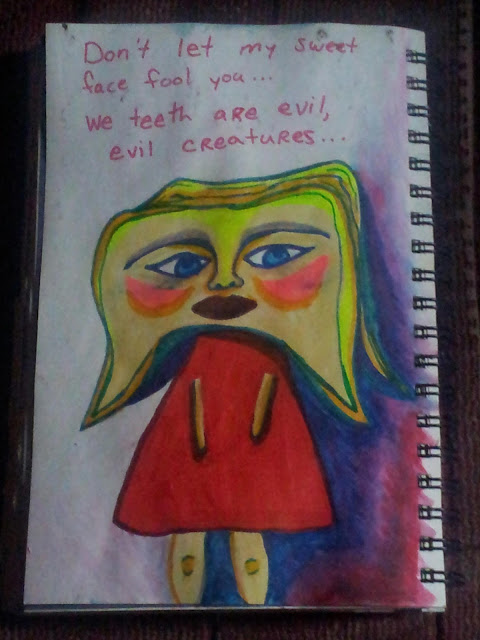 Don't let my sweet
face fool you...
We teeth are evil,
evil creatures...